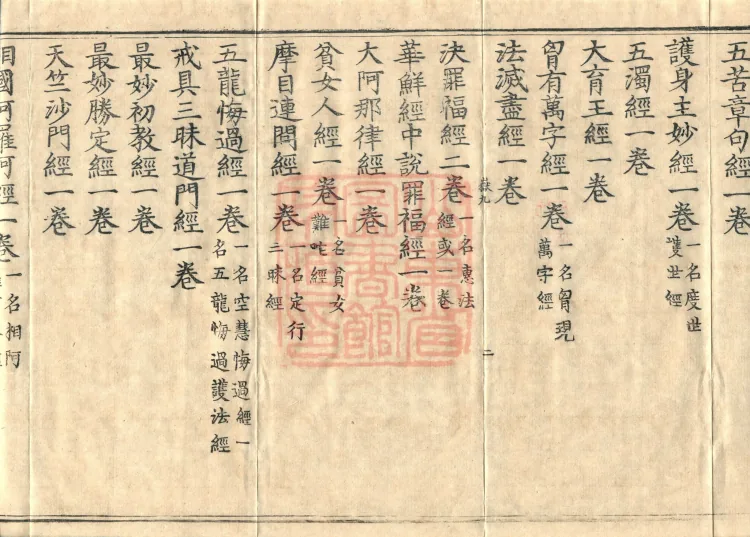 五苦章句經一卷
護身主妙經一卷 一名度世護世經
五濁經一卷
大育王經一卷
胷有萬字經一卷 一名胷現萬字經
法滅盡經一卷
嶽九
二
決罪福經二卷 一名惠法經或一卷
華鮮經中說罪福經一卷
大阿那律經一卷
貧女人經一卷 一名貧女難吒經
摩目連問經一卷 一名定行三昧經
五龍悔過經一卷 一名空慧悔過經一名五龍悔過護法經
戒具三昧道門經一卷
最妙初教經一卷
最妙勝定經一卷
天竺沙門經一卷
相國阿羅呵經一卷 一名相阿